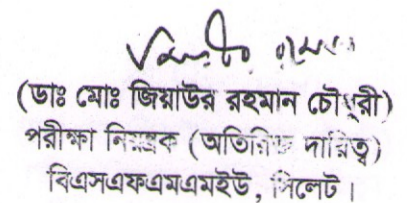 (ডাঃ মোঃ জিয়াউর রহমান চৌধুরী)
পরীক্ষা নিয়ন্ত্রক (অতিরিক্ত দায়িত্ব)
বিএসএফএমএমইউ, সিলেট।